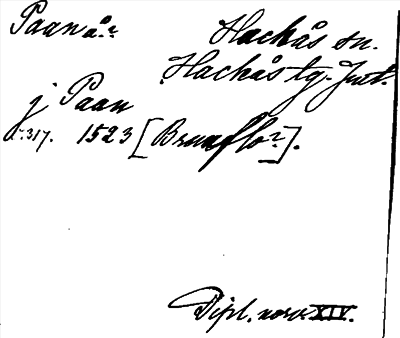 Paanå? Hackås sn.
Hackås tg. Jmt.
j Paan
s. 317. 1523 [Brunflo?].
Dipl. norv. XIV.